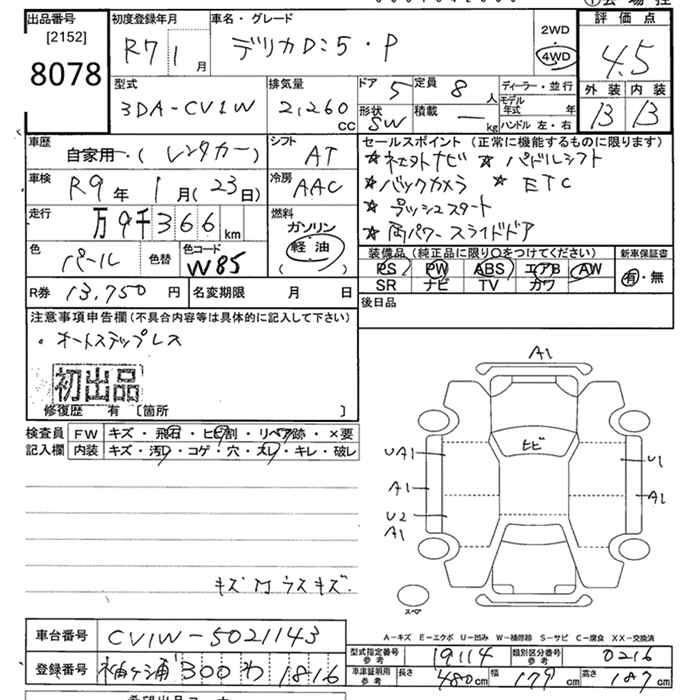 出品番号
[2152]
8078
初度登録年月
R7 1 月
車名・グレード
デリカD:5・P
2WD
4WD
評価点
4.5
外装 内装
13 13
型式
3DA-CV1W
排気量
2,260
CC
ドア 5
定員 8 人
形状 SW
積載 — kg
ディーラー・並行
モデル年式 年
ハンドル 左・右
車歴
自家用・(レンタカー)
シフト
AT
車検
R9 年 1 月(23日)
冷房
AAC
走行
万9千366 km
燃料
ガソリン
軽油
( )
色
パール
色替
色コード
W85
R券 13,750 円
名変期限 月 日
セールスポイント (正常に機能するものに限ります)
☆ネオトナビ ☆パドルシフト
☆バックカメラ ☆ETC
☆プッシュスタート
☆両パワースライドドア
装備品(純正品に限り○をつけてください)
PS PW ABS エアB AW
SR ナビ TV カワ
新車保証書
有・無
後日品
注意事項申告欄(不具合内容等は具体的に記入して下さい)
・オートステップレス
初出品
修復歴 有 〔箇所 〕
検査員記入欄
FW キズ・飛石・ヒビ割・リペア跡・×要
内装 キズ・汚レ・コゲ・穴・スレ・キレ・破レ
キズMウスキズ.
A1
ヒビ
UA1
U1
A1
A1
U2
A1
スペア
車台番号
CV1W-5021143
登録番号
袖ヶ浦300わ1816
A-キズ E-エクボ U-凹み W-補修跡 S-サビ C-腐食 XX-交換済
型式指定番号参考
19114
類別区分番号参考
0216
車庫証明用参考
長さ 480cm 幅 179cm 高さ 187cm